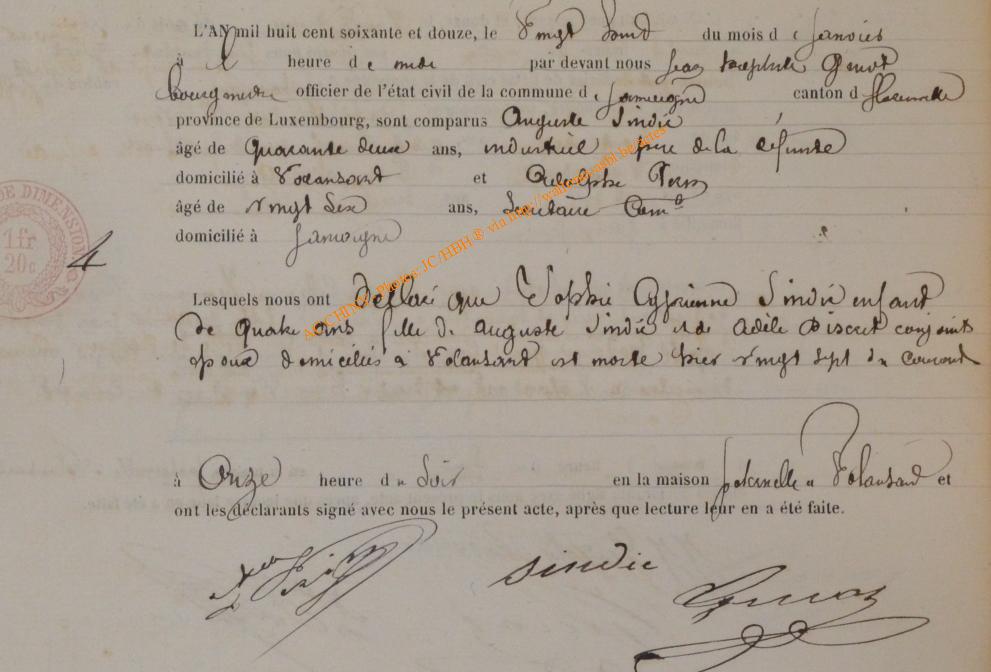 L'AN mil huit cent soixante et douze, le Vingt huit du mois de Janvier
à heure de midi par devant nous Jean Genot
bourgmestre officier de l'état civil de la commune de Jamoigne canton de Florenville
province de Luxembourg, sont comparus Auguste Sindic
âgé de Quarante deux ans, industriel père de la défunte
domicilié à Valansart et Adolphe
âgé de vingt six ans, Secrétaire Comal
domicilié à Jamoigne
Lesquels nous ont déclaré que Sophie Cyprienne Sindic enfant
de quatre ans fille de Auguste Sindic et de Adèle Discret conjoints
époux domiciliés à Valansart est morte hier vingt sept du courant
à Onze heure du Soir en la maison paternelle à Valansart et
ont les déclarants signé avec nous le présent acte, après que lecture leur en a été faite.
Sindic
Genot
DE DIMENSION
1fr
20c
4
ARCHIVES Photos: JC/HBH ® via http://wallonia-asbl.be/actes